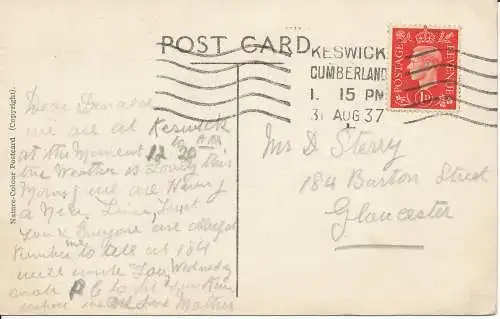 POST CARD
KESWICK
CUMBERLAND
1. 15 PM
31 AUG 37
POSTAGE
REVENUE
1D
Nature-Colour Postcard (Copyright).
Dear Donald
we are at Keswick
at the Moment 12 20
the Weather is Lovely this
Morng we are Having
a Nice Time Trust
you & Everyone are alright
Rember me to all at 184
will write you Wednesday
P C to
Mother
Mrs D Sterry
184 Barton Street
Gloucester